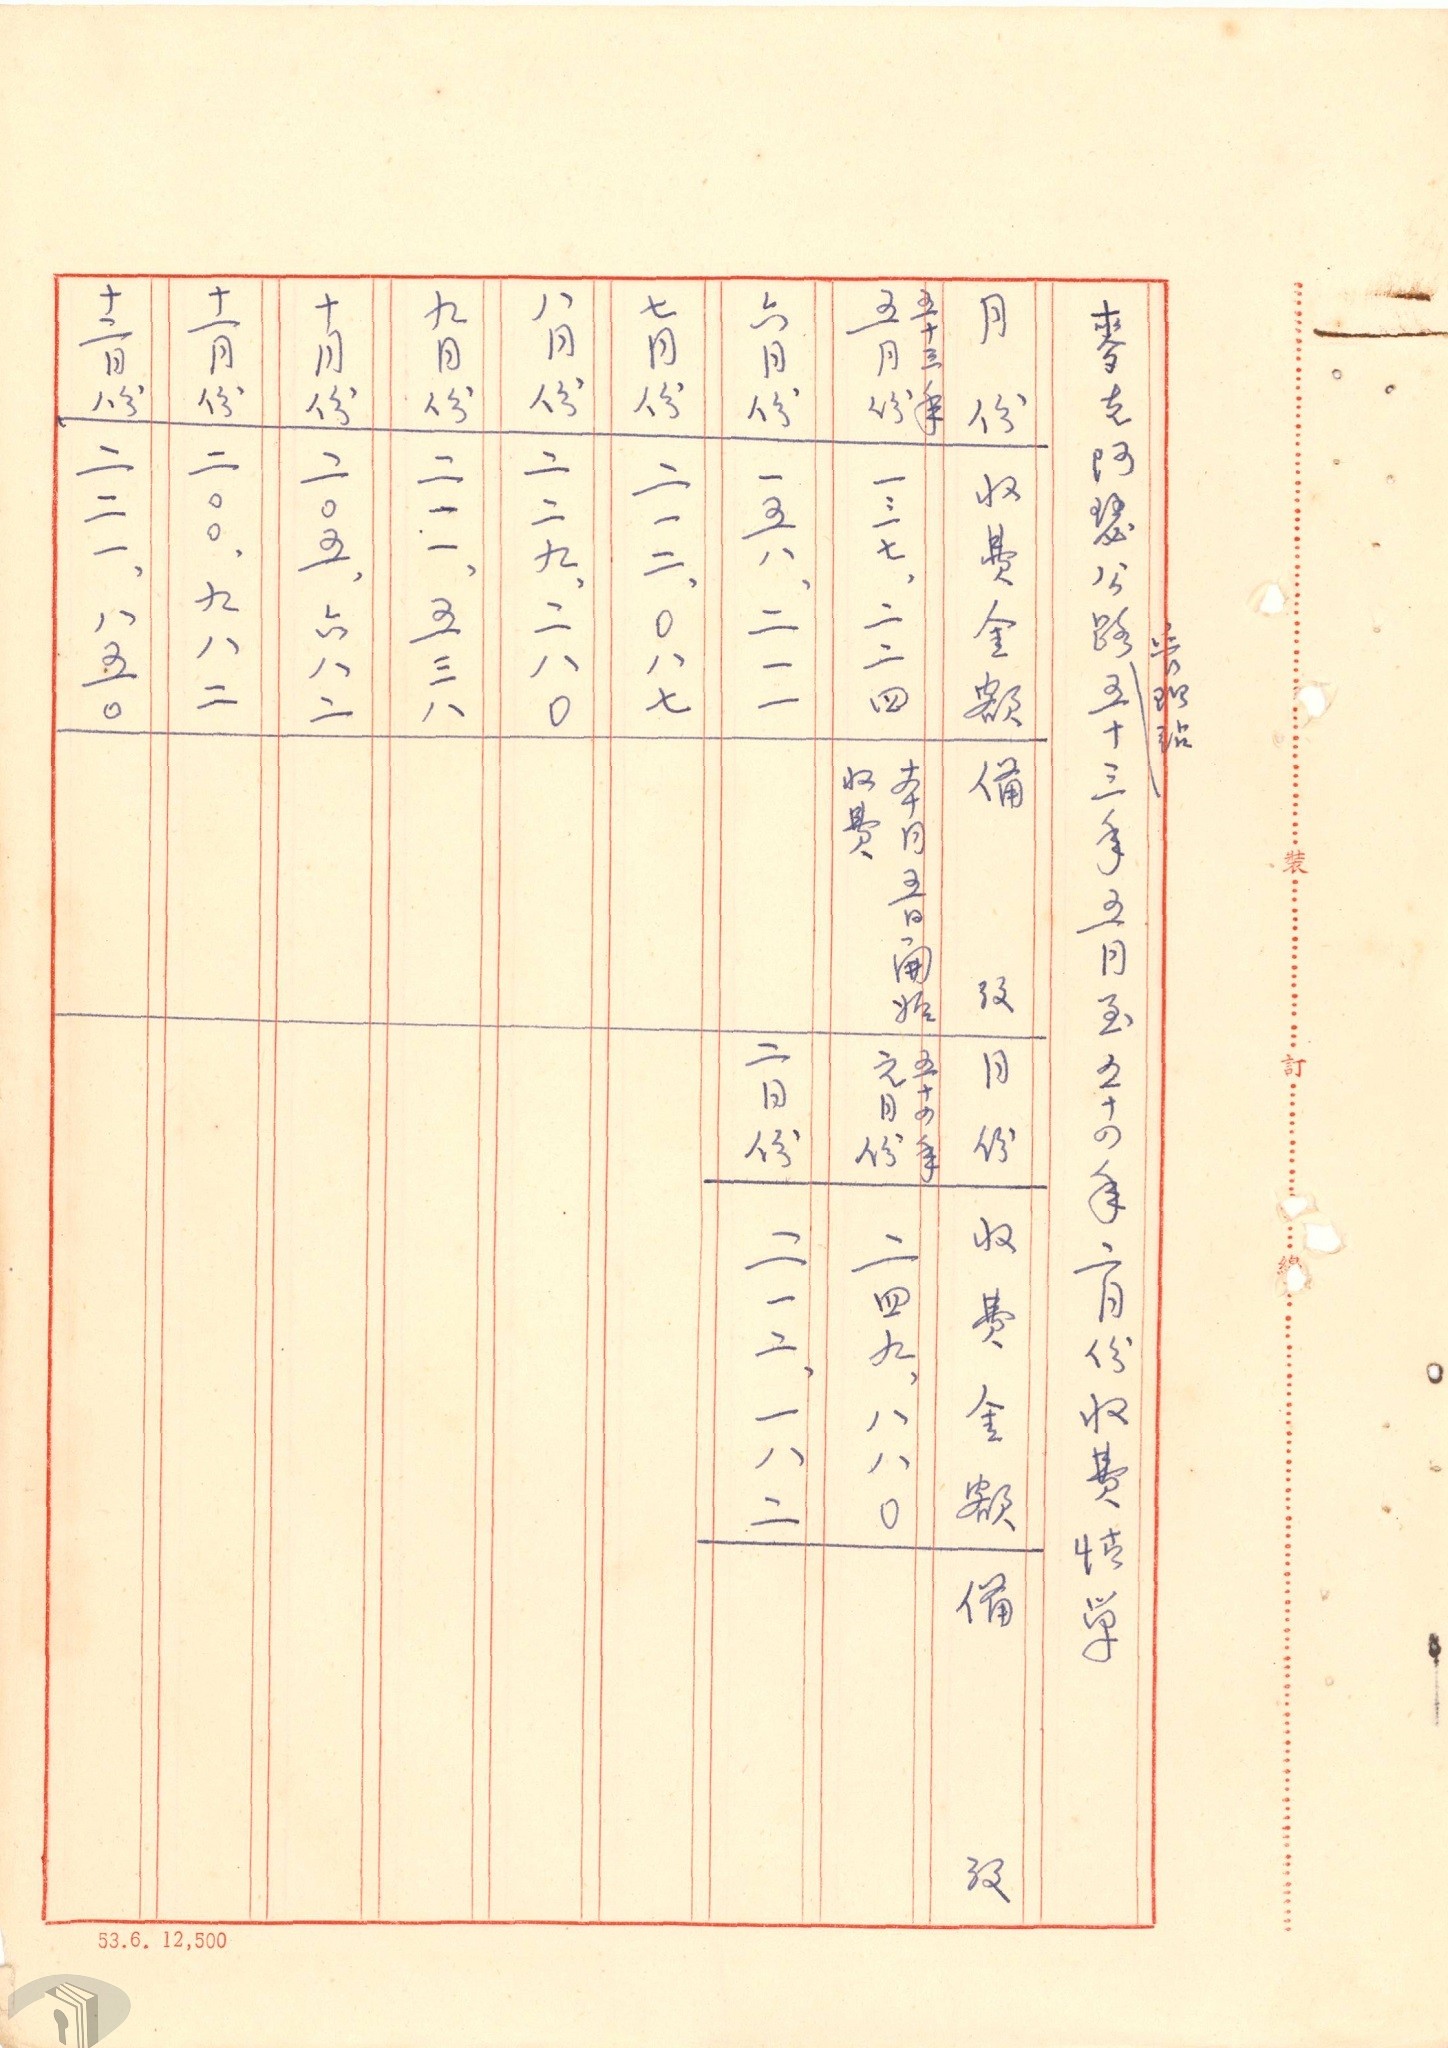 裝訂線
麥克阿瑟公路五十三年五月至五十四年二月份收費情單
月份 收費金額 備攷 月份 收費金額 備攷
五十三年
五月份 一三七、二二四 本月五日開始
收費
五十四年
元月份 二四九、八八〇
六月份 一五八、二一一 二月份 二一二、一八二
七月份 二一二、〇八七
八月份 二二九、二八〇
九月份 二一一、五三八
十月份 二〇五、六八二
十一月份 二〇〇、九八二
十二月份 二二一、八五〇
53.6. 12,500